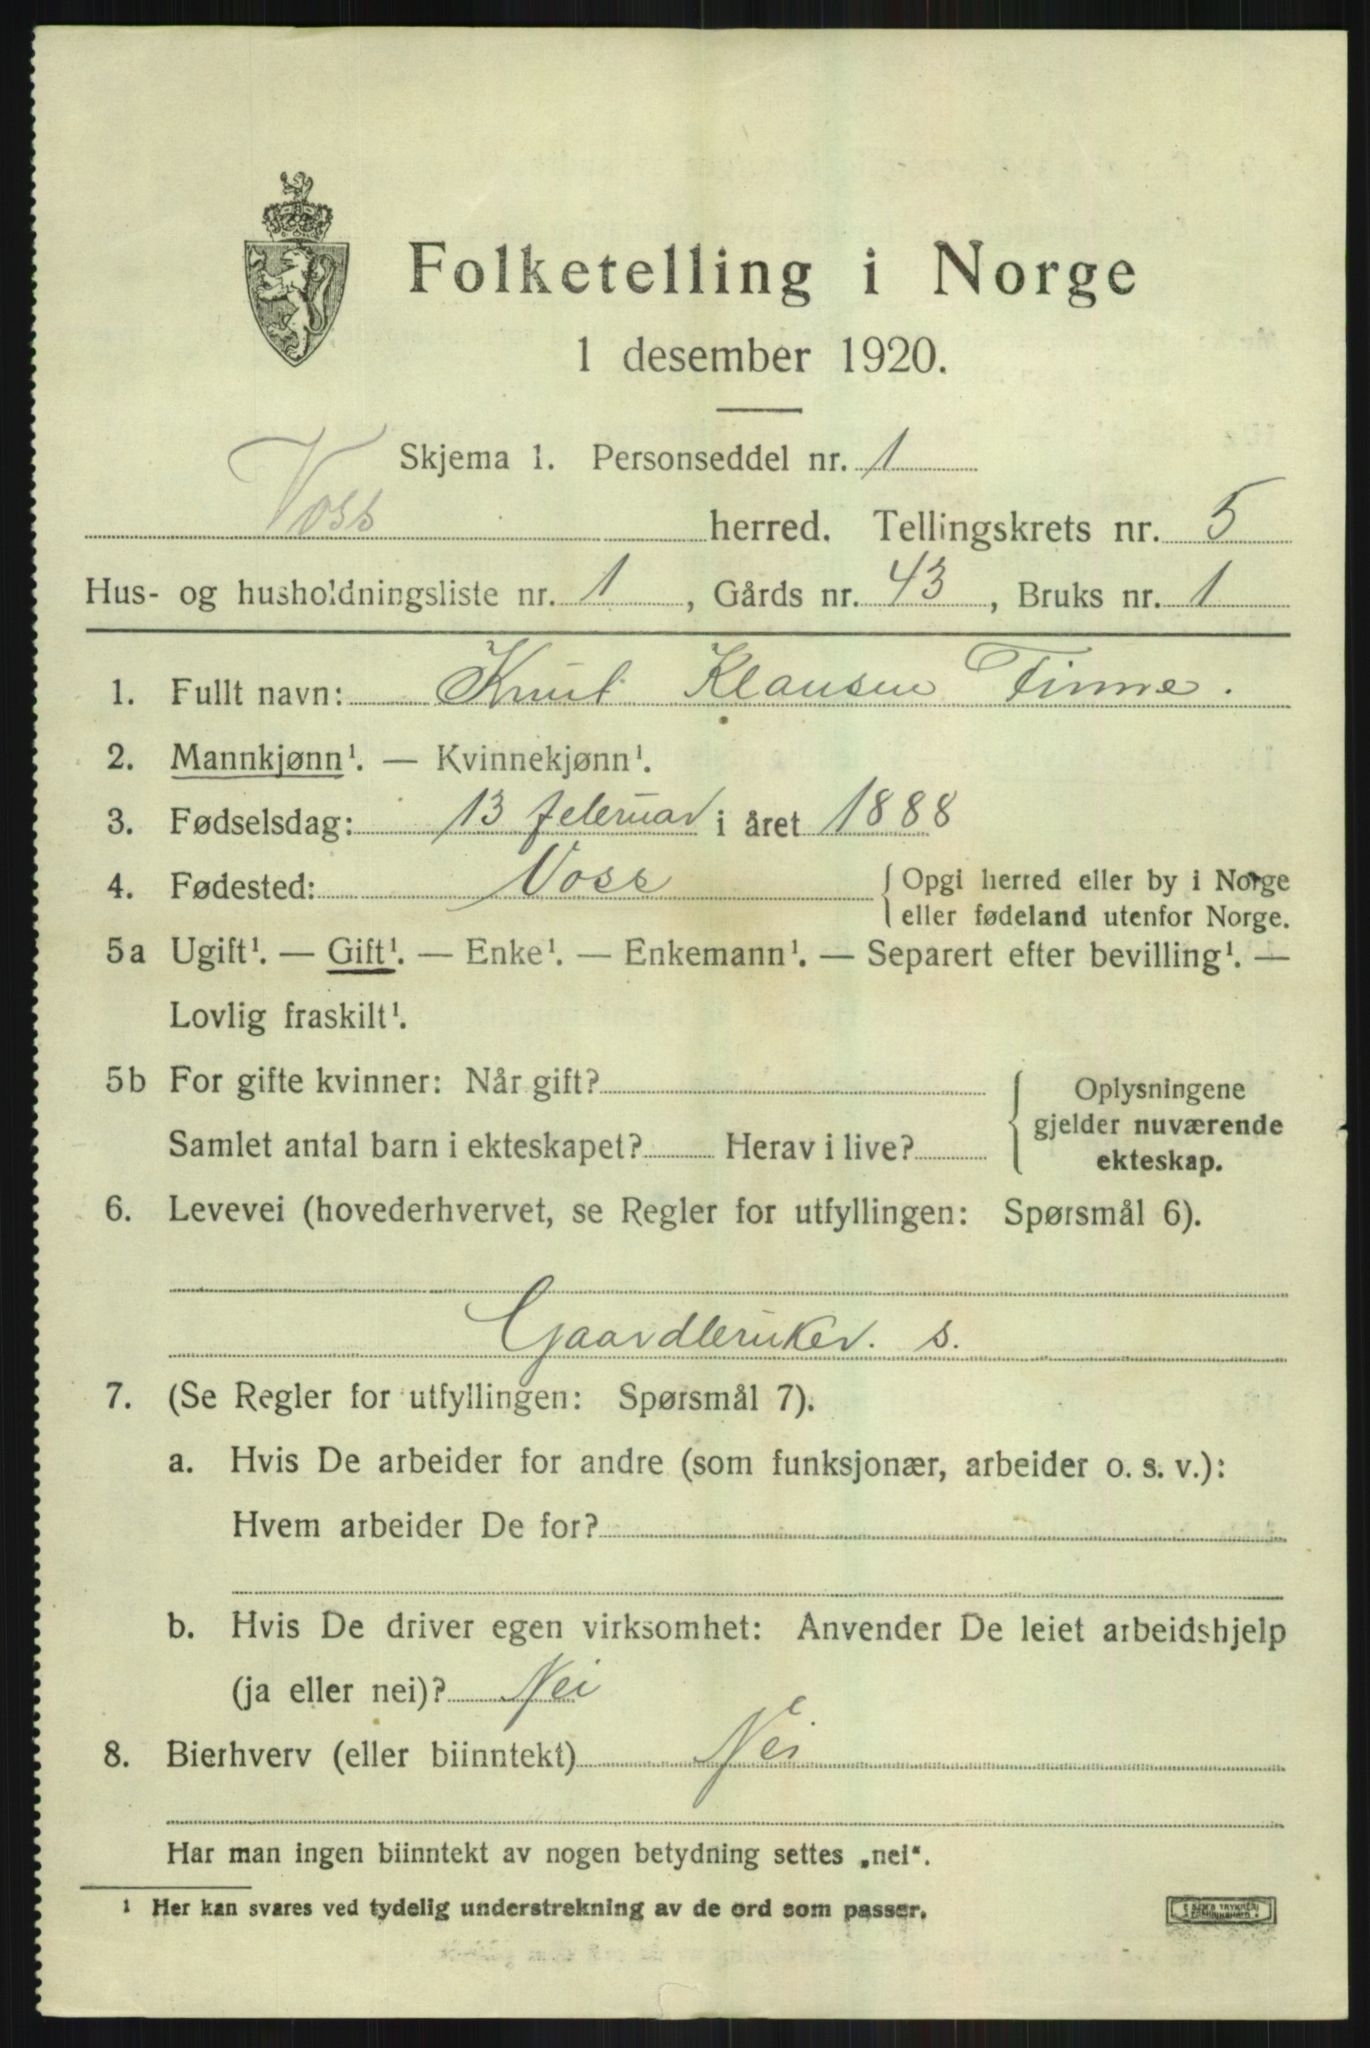 Folketelling i Norge
1 desember 1920.
Skjema 1. Personseddel nr. 1
Voss herred. Tellingskrets nr. 5
Hus- og husholdningsliste nr. 1, Gårds nr. 43, Bruks nr. 1
1. Fullt navn: Knut Klausen Finne.
2. Mannkjønn¹. — Kvinnekjønn¹.
3. Fødselsdag: 13 februar i året 1888
4. Fødested: Voss { Opgi herred eller by i Norge
eller fødeland utenfor Norge.
5a Ugift¹. — Gift¹. — Enke¹. — Enkemann¹. — Separert efter bevilling¹. —
Lovlig fraskilt¹.
5b For gifte kvinner: Når gift?
Samlet antal barn i ekteskapet? Herav i live?
Oplysningene
gjelder nuværende
ekteskap.
6. Levevei (hovederhvervet, se Regler for utfyllingen: Spørsmål 6).
Gaardbruker. s.
7. (Se Regler for utfyllingen: Spørsmål 7).
a. Hvis De arbeider for andre (som funksjonær, arbeider o. s. v.):
Hvem arbeider De for?
b. Hvis De driver egen virksomhet: Anvender De leiet arbeidshjelp
(ja eller nei)? Nei
8. Bierhverv (eller biinntekt) Nei
Har man ingen biinntekt av nogen betydning settes „nei“.
¹ Her kan svares ved tydelig understrekning av de ord som passer.